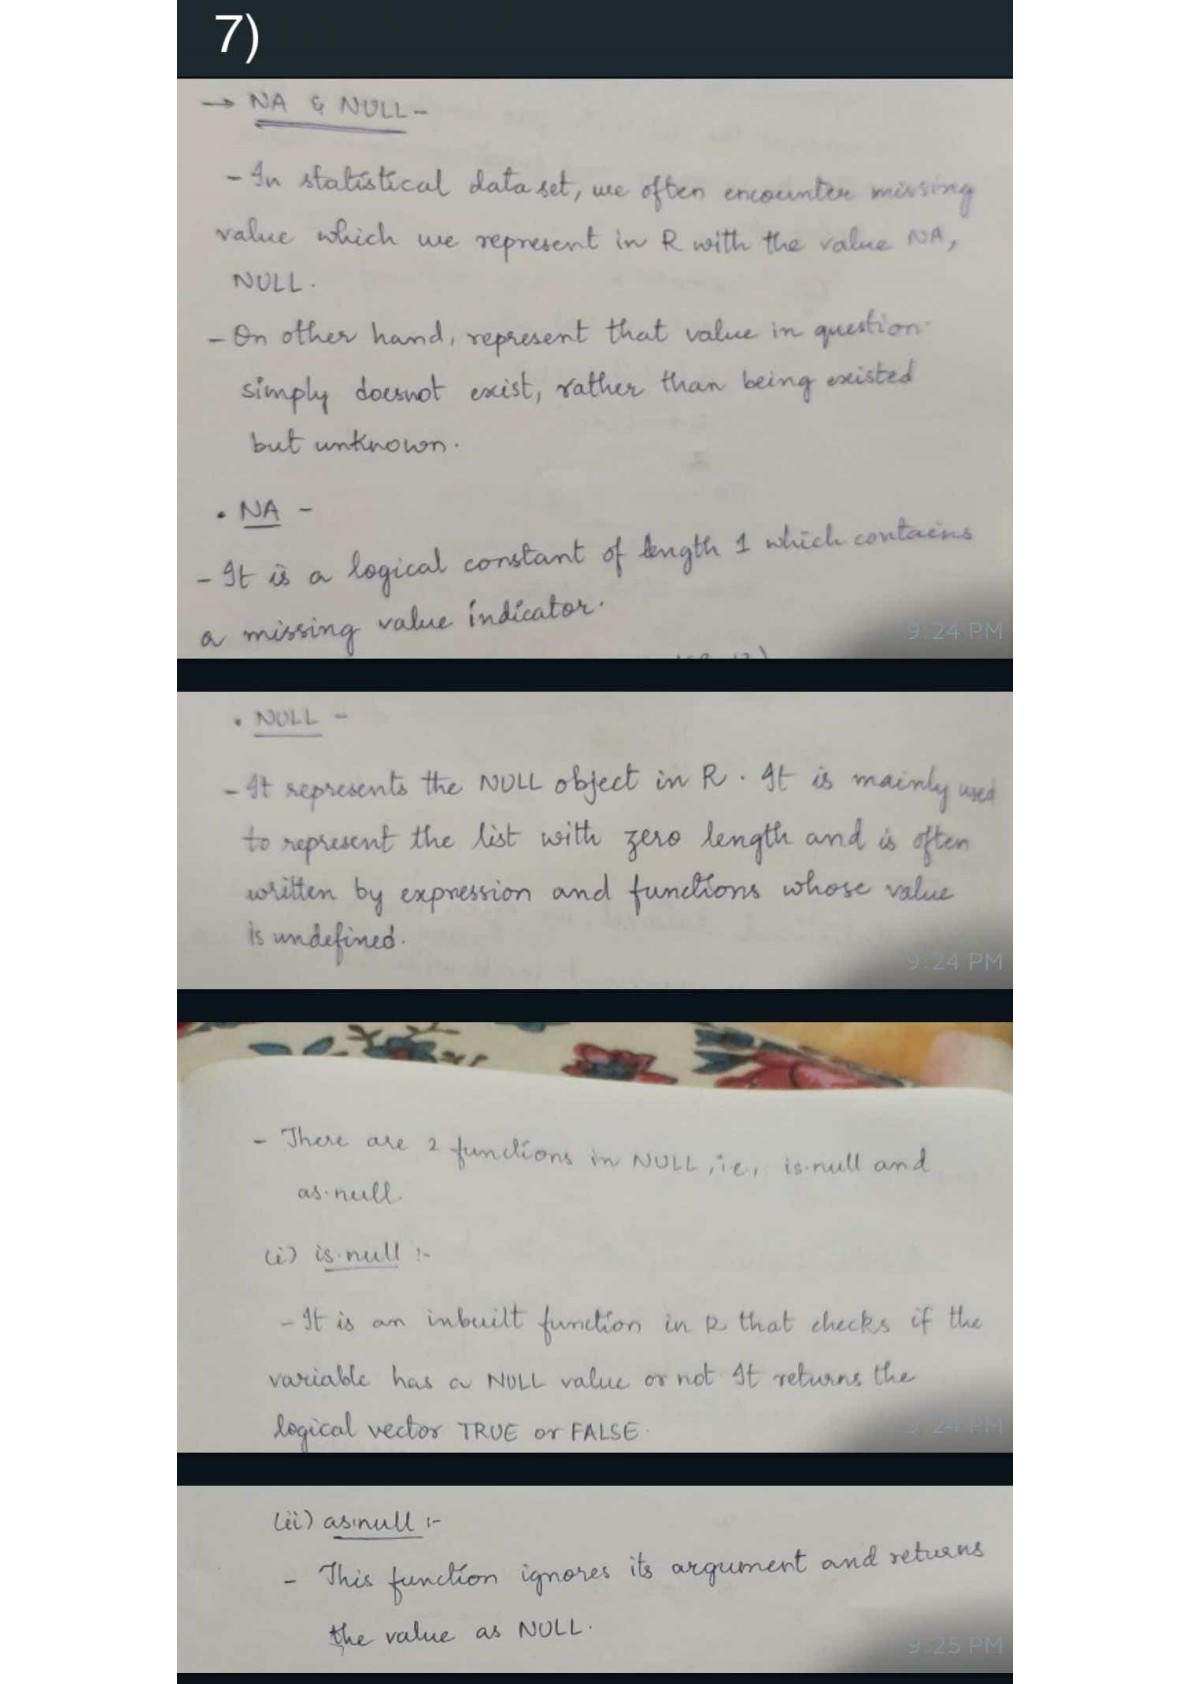 7)
→ NA & NULL -
- In statistical data set, we often encounter missing
value which we represent in R with the value NA,
NULL.
- On other hand, represent that value in question
simply doesnot exist, rather than being existed
but unknown.
• NA -
- It is a logical constant of length 1 which contains
a missing value indicator.
9:24 PM
• NULL -
- It represents the NULL object in R. It is mainly used
to represent the list with zero length and is often
written by expression and functions whose value
is undefined.
9:24 PM
- There are 2 functions in NULL, ie, is.null and
as.null.
(i) is.null :-
- It is an inbuilt function in R that checks if the
variable has a NULL value or not It returns the
logical vector TRUE or FALSE.
9:24 PM
(ii) as.null :-
- This function ignores its argument and returns
the value as NULL.
9:25 PM